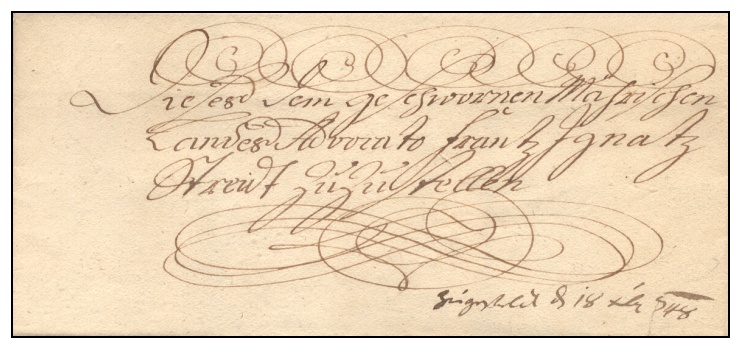 Dieses dem geschwornen Mährischen
Landes Advocato Frantz Ignatz
Streidt zuzustellen
zugestelt d 18 xbr 748